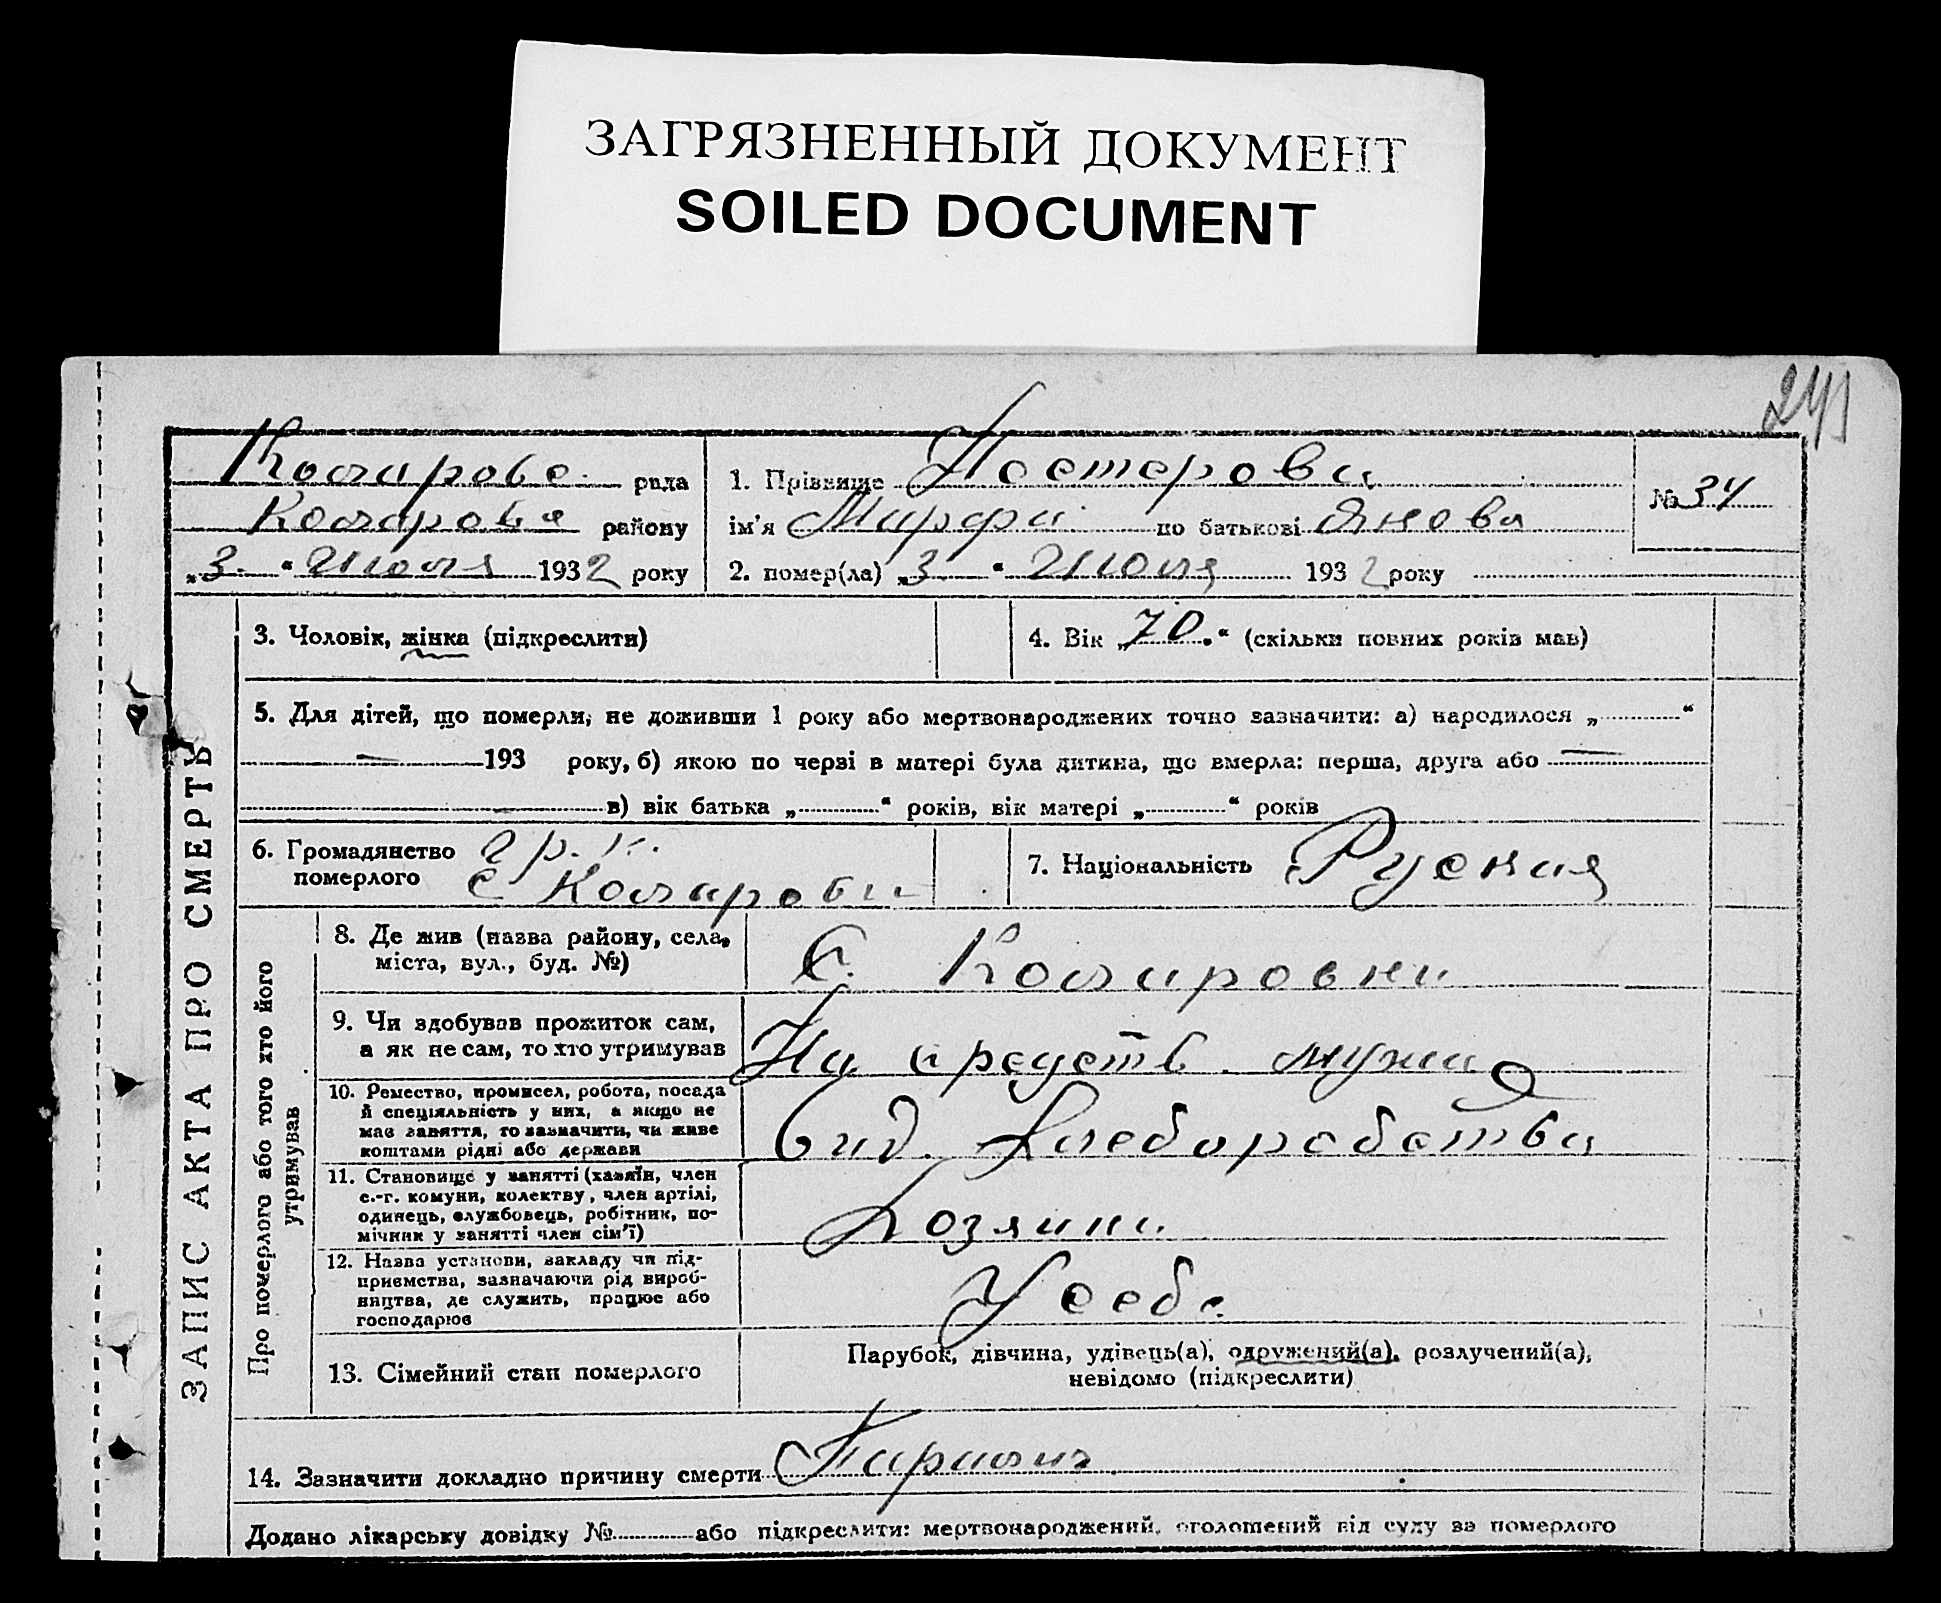 ЗАГРЯЗНЕННЫЙ ДОКУМЕНТ
SOILED DOCUMENT
рада
району
"3." Июля 1932 року
1. Прізвище Нестерова
ім'я Марфа по батькові Янова
2. помер(ла) "3" Июля 1932 року
№ 34
ЗАПИС АКТА ПРО СМЕРТЬ
3. Чоловік, жінка (підкреслити)
4. Вік "70." (скільки повних років мав)
5. Для дітей, що померли, не доживши 1 року або мертвонароджених точно зазначити: а) народилося „ “
— 193 року, б) якою по черзі в матері була дитина, що вмерла: перша, друга або —
в) вік батька „ “ років, вік матері „ “ років
6. Громадянство гр.
померлого с
7. Національність Руская
Про померлого або того хто його
утримував
8. Де жив (назва району, села,
міста, вул., буд. №)
С.
9. Чи здобував прожиток сам,
а як не сам, то хто утримував
На средств. мужа
10. Ремество, промисел, робота, посада
й спеціяльність у них, а якщо не
має заняття, то зазначити, чи живе
коштами рідні або держави
від. Хлеборобства
11. Становище у занятті (хазяїн, член
с.-г. комуни, колектву, член артілі,
одинець, службовець, робітник, по-
мічник у занятті член сім'ї)
Хозяин
12. Назва установи, закладу чи під-
приємства, зазначаючи рід вироб-
ництва, де служить, працює або
господарює
У себе
13. Сімейний стан померлого
Парубок, дівчина, удівець(а), одружений(а), розлучений(а),
невідомо (підкреслити)
14. Зазначити докладно причину смерти
Додано лікарську довідку № або підкреслити: мертвонароджений, оголошений від суду за померлого